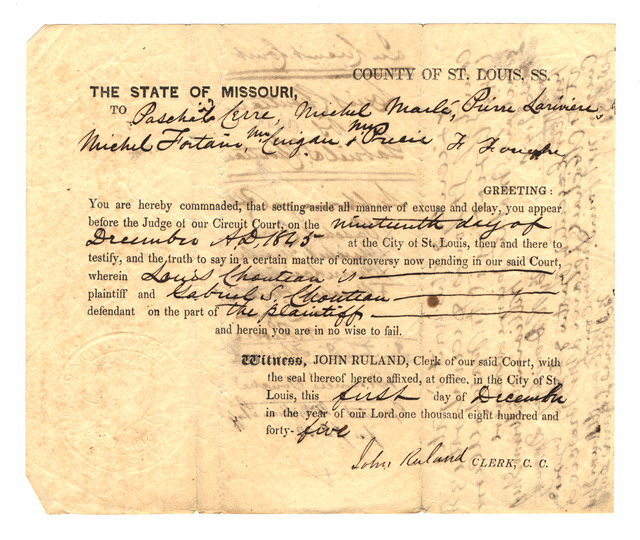 COUNTY OF ST. LOUIS, SS.
THE STATE OF MISSOURI,
TO Paschal Cerre, Michel Marlé, Pierre Lariviere,
Michel Fortain, Mr. &
GREETING:
You are hereby commnaded, that setting aside all manner of excuse and delay, you appear
before the Judge of our Circuit Court, on the nineteenth day of
December A.D. 1845 at the City of St. Louis, then and there to
testify, and the truth to say in a certain matter of controversy now pending in our said Court,
wherein Louis Chouteau is
plaintiff and Gabriel S. Chouteau
defendant on the part of the plaintiff
and herein you are in no wise to fail.
Witness, JOHN RULAND, Clerk of our said Court, with
the seal thereof hereto affixed, at office, in the City of St.
Louis, this first day of December
in the year of our Lord one thousand eight hundred and
forty-five
John Ruland CLERK, C. C.